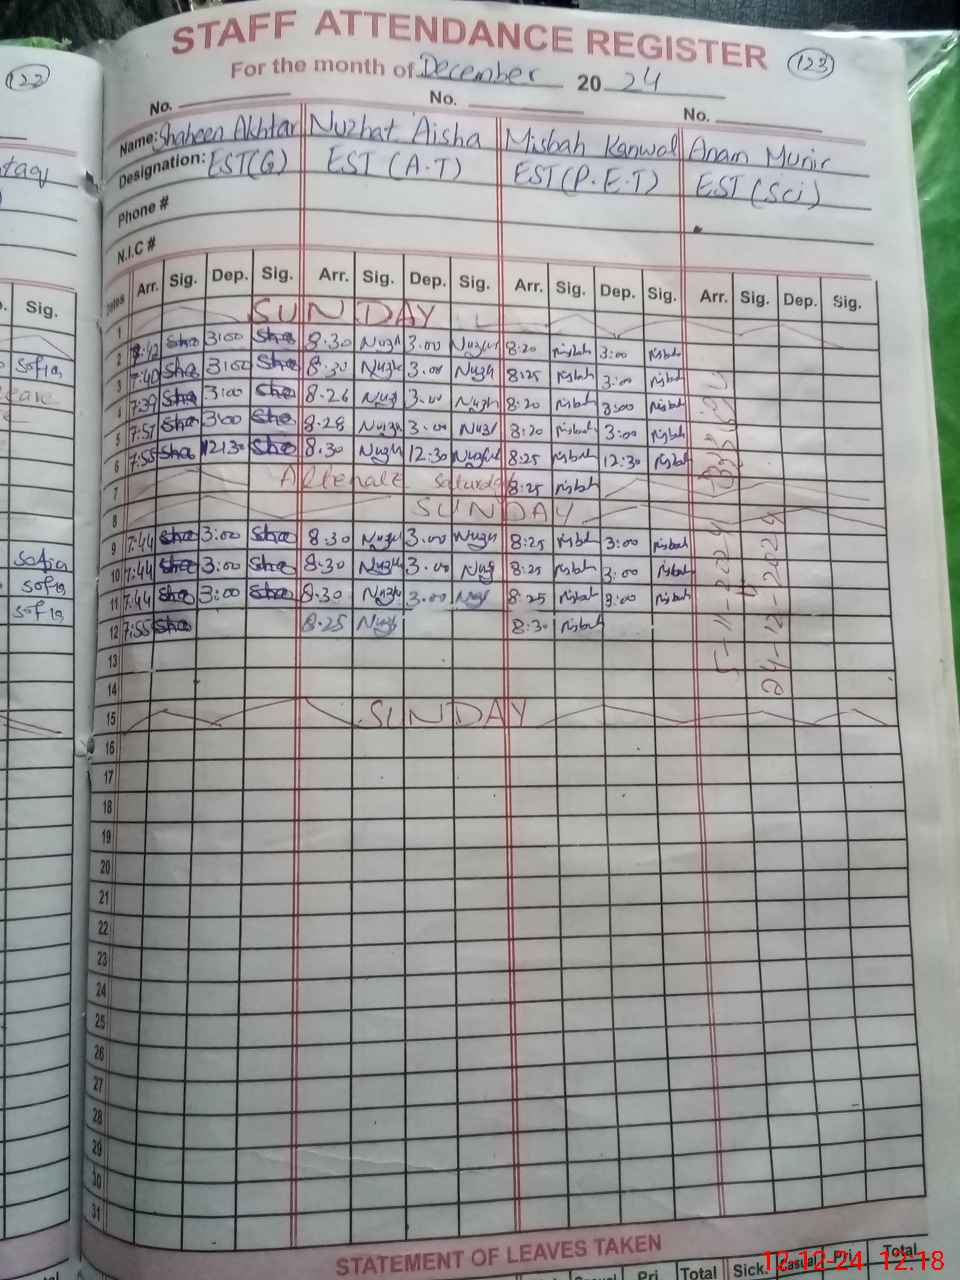 122
taq
Sig.
Sofia
Leave
Sofia
Sofia
Sofia
STAFF ATTENDANCE REGISTER
123
For the month of December 2024
No. No. No.
Name: Shaheen Akhtar Nuzhat Aisha Misbah Kanwal Anam Munir
Designation: EST(G) EST (A.T) EST(P.E.T) EST (Sci)
Phone #
N.I.C #
Dates Arr. Sig. Dep. Sig. Arr. Sig. Dep. Sig. Arr. Sig. Dep. Sig. Arr. Sig. Dep. Sig.
1 SUNDAY
2 8:12 Sha 3:00 Sha 8.30 Nuzh 3.00 Nuzhat 8:20 Misbah 3:00 Misbah
3 7:40 Sha 3:00 Sha 8.30 Nuzh 3.00 Nuzh 8:25 Misbah 3:00 Misbah
4 7:39 Sha 3:00 Sha 8.26 Nuzh 3.00 Nuzh 8:20 Misbah 3:00 Misbah
5 7:57 Sha 3:00 Sha 8.28 Nuzh 3.00 Nuzh 8:20 Misbah 3:00 Misbah
6 7:55 Sha 12:30 Sha 8.30 Nuzh 12:30 Nuzhat 8:25 Misbah 12:30 Misbah
7 Alternate Saturday 8:25 Misbah
8 SUNDAY
9 7:44 Sha 3:00 Sha 8.30 Nuzh 3.00 Nuzh 8:25 Misbah 3:00 Misbah
10 7:44 Sha 3:00 Sha 8.30 Nuzh 3.00 Nuzh 8:25 Misbah 3:00 Misbah
11 7:44 Sha 3:00 Sha 8.30 Nuzh 3.00 Nuzh 8:25 Misbah 3:00 Misbah
12 7:55 Sha 8.25 Nuzh 8:30 Misbah
5-11-2024
24-12-2024
13
14
15 SUNDAY
16
17
18
19
20
21
22
23
24
25
26
27
28
29
30
31
STATEMENT OF LEAVES TAKEN
Pri Total Sick. Casual Pri. Total
12-12-24 12:18